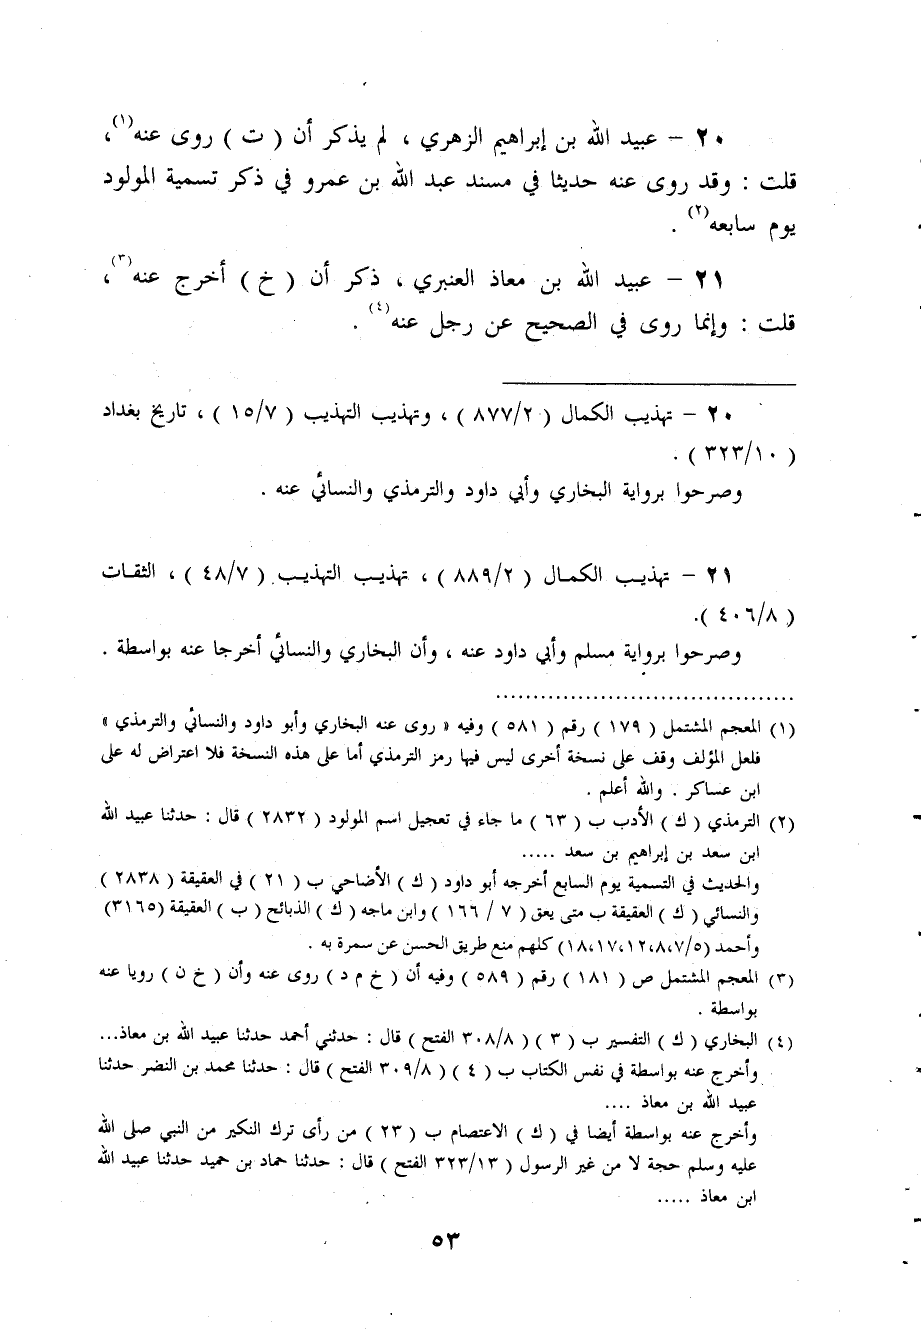 ٢٠ – عبيد الله بن إبراهيم الزهري ، لم يذكر أن ( ت ) روى عنه(١)،
قلت : وقد روى عنه حديثا في مسند عبد الله بن عمرو في ذكر تسمية المولود
يوم سابعه(٢) .
٢١ – عبيد الله بن معاذ العنبري ، ذكر أن ( خ ) أخرج عنه(٣)،
قلت : وإنما روى في الصحيح عن رجل عنه(٤) .
٢٠ – تهذيب الكمال ( ٨٧٧/٢ ) ، وتهذيب التهذيب ( ١٥/٧ ) ، تاريخ بغداد
( ٣٢٣/١٠ ) .
وصرحوا برواية البخاري وأبي داود والترمذي والنسائي عنه .
٢١ – تهذيب الكمال ( ٨٨٩/٢ ) ، تهذيب التهذيب ( ٤٨/٧ ) ، الثقات
( ٤٠٦/٨ ).
وصرحوا برواية مسلم وأبي داود عنه ، وأن البخاري والنسائي أخرجا عنه بواسطة .
(١) المعجم المشتمل ( ١٧٩ ) رقم ( ٥٨١ ) وفيه « روى عنه البخاري وأبو داود والنسائي والترمذي »
فلعل المؤلف وقف على نسخة أخرى ليس فيها رمز الترمذي أما على هذه النسخة فلا اعتراض له على
ابن عساكر . والله أعلم .
(٢) الترمذي ( ك ) الأدب ب ( ٦٣ ) ما جاء في تعجيل اسم المولود ( ٢٨٣٢ ) قال : حدثنا عبيد الله
ابن سعد بن إبراهيم بن سعد .....
والحديث في التسمية يوم السابع أخرجه أبو داود ( ك ) الأضاحي ب ( ٢١ ) في العقيقة ( ٢٨٣٨ )
والنسائي ( ك ) العقيقة ب متى يعق ( ٧ / ١٦٦ ) وابن ماجه ( ك ) الذبائح ( ب ) العقيقة (٣١٦٥)
وأحمد (١٨،١٧،١٢،٨،٧/٥) كلهم منع طريق الحسن عن سمرة به .
(٣) المعجم المشتمل ص ( ١٨١ ) رقم ( ٥٨٩ ) وفيه أن ( خ م د ) روى عنه وأن ( خ ن ) رويا عنه
بواسطة .
(٤) البخاري ( ك ) التفسير ب ( ٣ ) ( ٣٠٨/٨ الفتح ) قال : حدثني أحمد حدثنا عبيد الله بن معاذ...
وأخرج عنه بواسطة في نفس الكتاب ب ( ٤ ) ( ٣٠٩/٨ الفتح ) قال : حدثنا محمد بن النضر حدثنا
عبيد الله بن معاذ ....
وأخرج عنه بواسطة أيضا في ( ك ) الاعتصام ب ( ٢٣ ) من رأى ترك النكير من النبي صلى الله
عليه وسلم حجة لا من غير الرسول ( ٣٢٣/١٣ الفتح ) قال : حدثنا حماد بن حميد حدثنا عبيد الله
ابن معاذ .....
٥٣